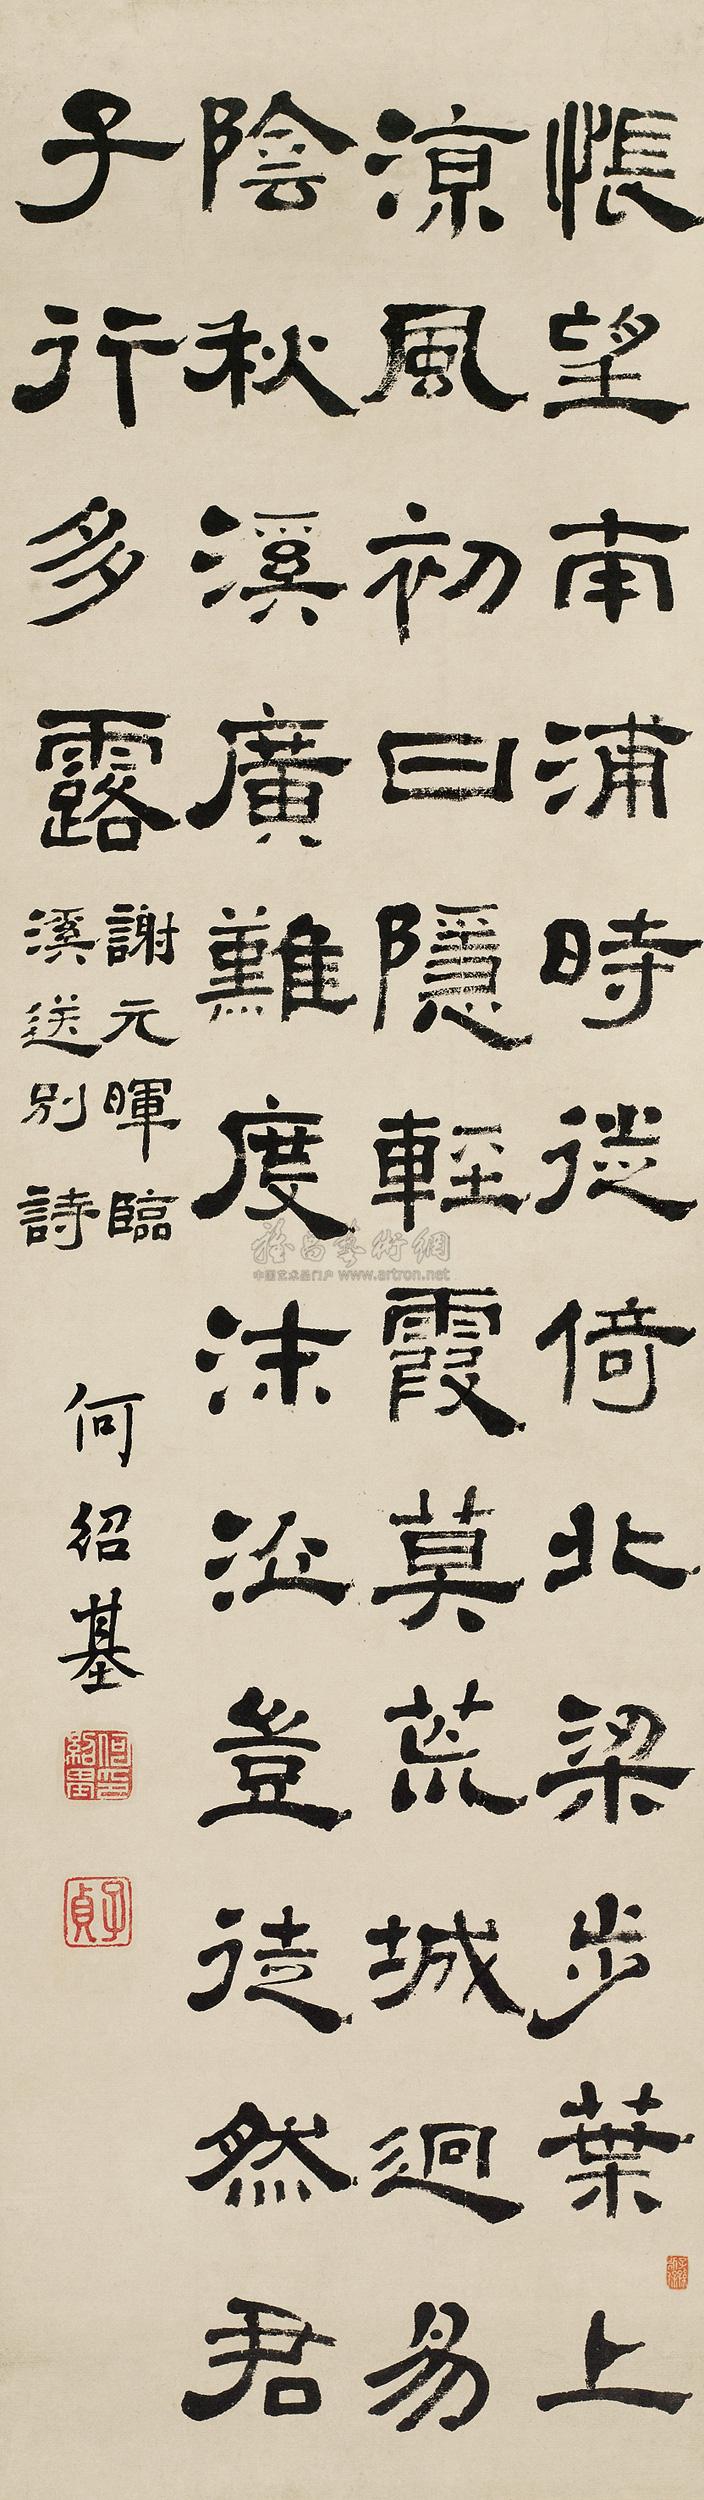 悵望南浦時徙倚北梁步葉上
涼風初日隱輕霞莫荒城迥易
陰秋溪廣難度沫泣豈徒然君
子行多露
謝元暉臨
溪送別詩
何紹基
何紹基印
子貞
雅昌藝術網
中国艺术品门户 www.artron.net